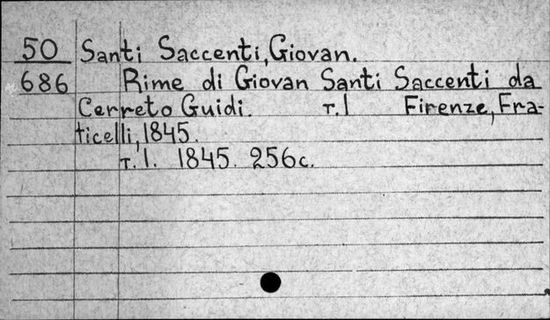 50 Santi Saccenti, Giovan.
686 Rime di Giovan Santi Saccenti da
Cerreto Guidi. т. I Firenze, Fra-
ticelli, 1845.
т. 1. 1845. 256с.